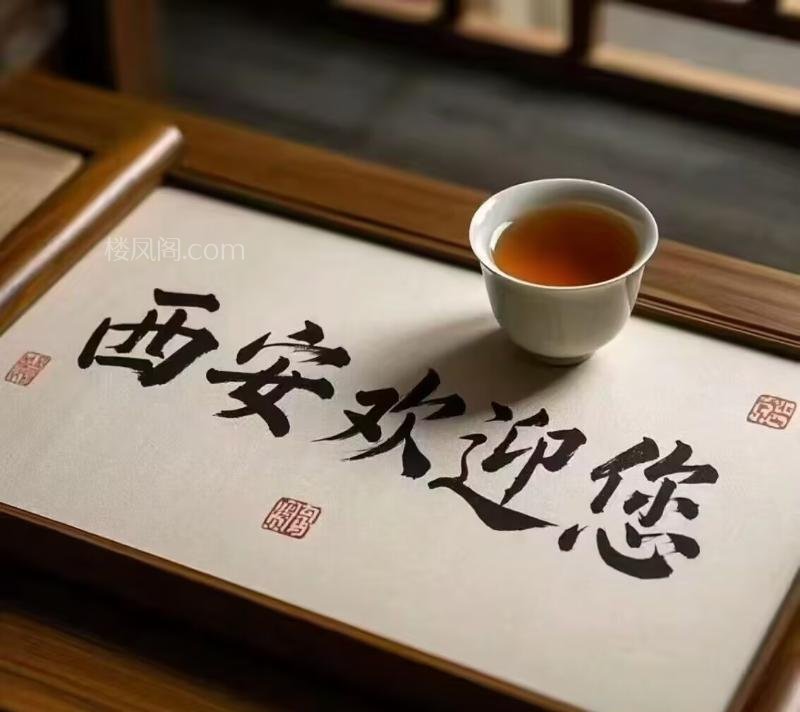 楼凤阁.com
西安欢迎您